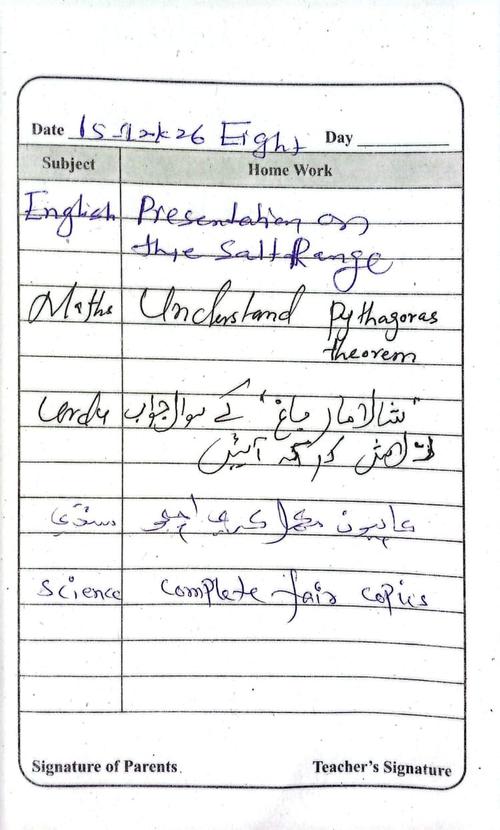 Date 15-1-2k26 Eight Day
Subject Home Work
English Presentation on
the Salt Range
Maths Understand Pythagoras
theorem
Urdu "شالامار باغ" کے سوال جواب
کر کہ آئیں
سنڌي ڪاپيون مڪمل ڪري اچو
Science complete fair copies
Signature of Parents Teacher's Signature